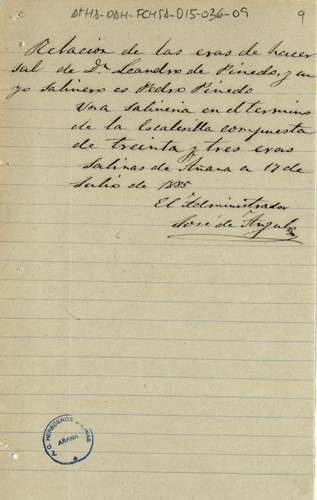 ATHA-DAH-FCHSA-D15-036-09
9
Relacion de las eras de hacer
sal de Dn Leandro de Pinedo, y cu
yo salinero es Pedro Pinedo
Una salineria en el termino
de la Escalerilla compuesta
de treinta y tres eras
Salinas de Añana a 17 de
Julio de 1885
El Administrador
José de Angulo
HEREDEROS
AÑANA